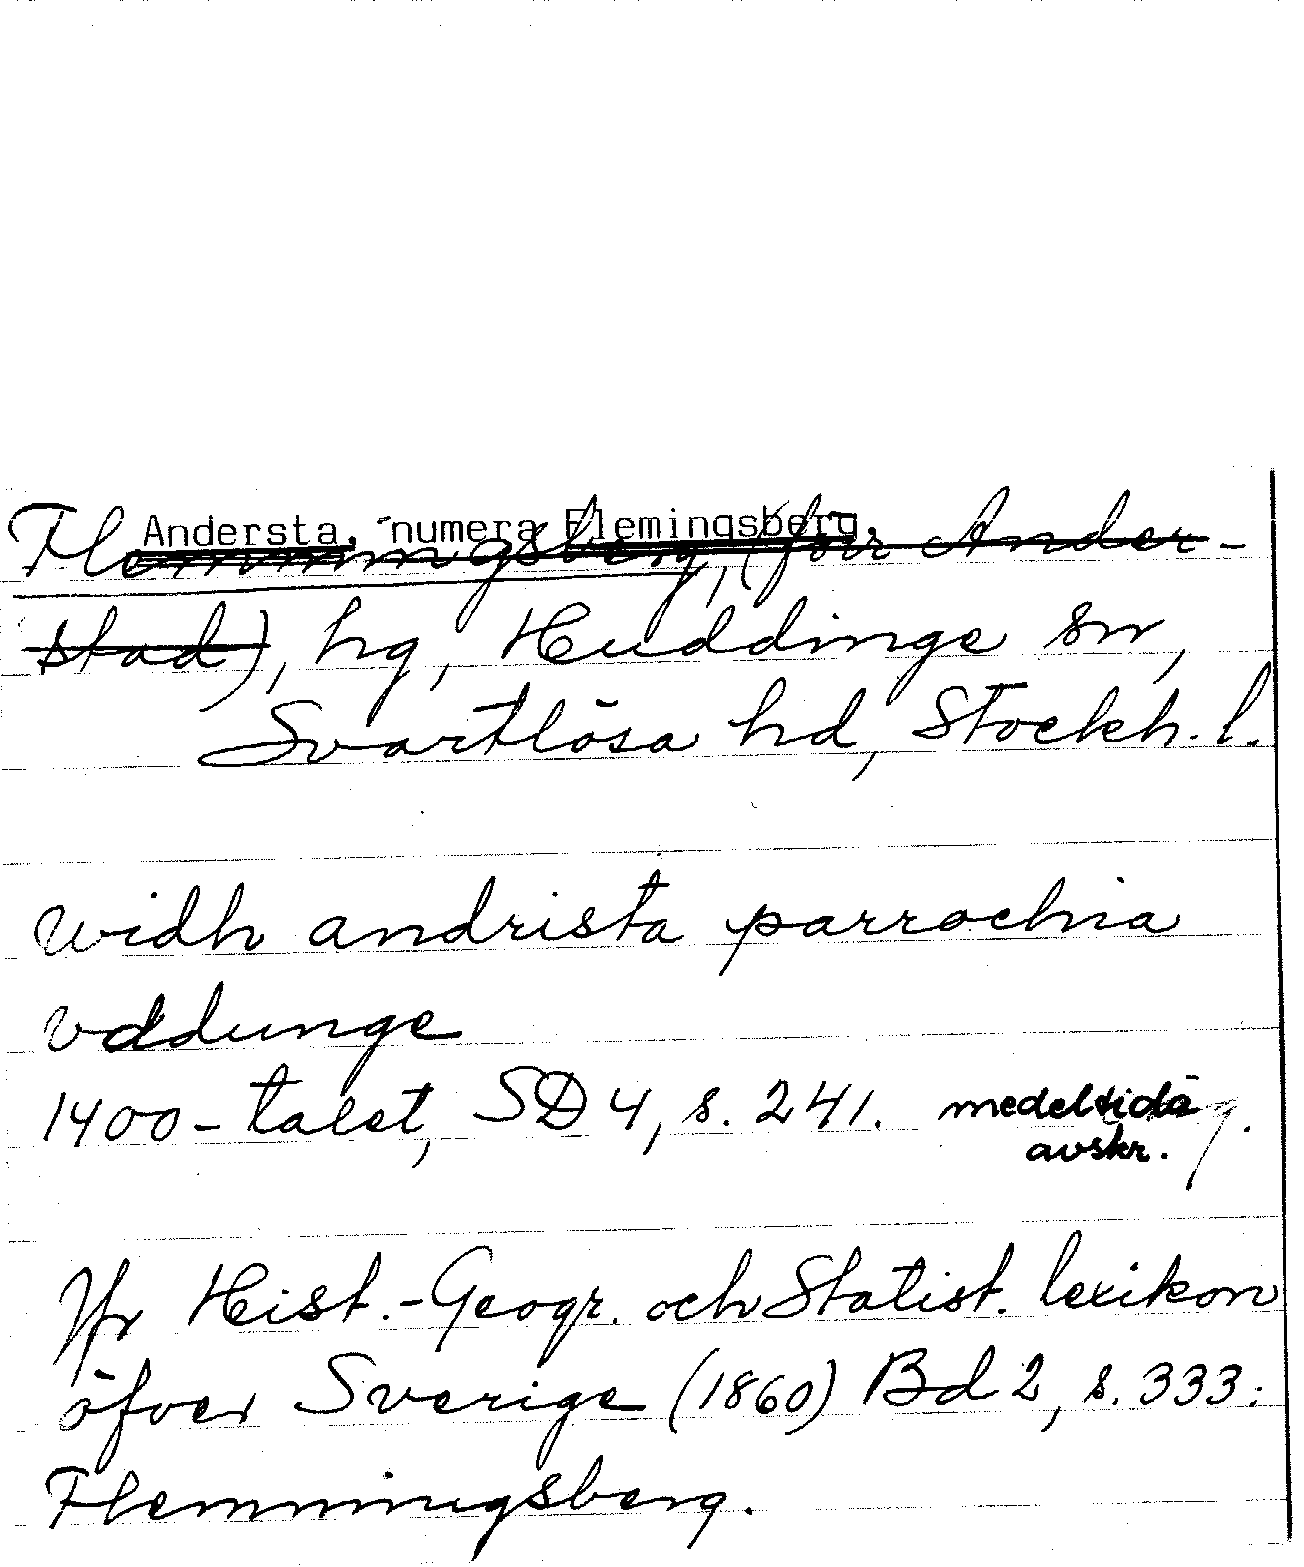 Andersta, numera Flemingsberg,
Flemmingsberg, (förr Ander-
stad), hg, Huddinge sn,
Svartlösa hd, Stockh. l.
widh andrista parrochia
vddunge
1400-talet, SD 4, s. 241. medeltida
avskr.
Jfr Hist.-Geogr. och Statist. lexikon
öfver Sverige (1860) Bd 2, s. 333:
Flemmingsberg.